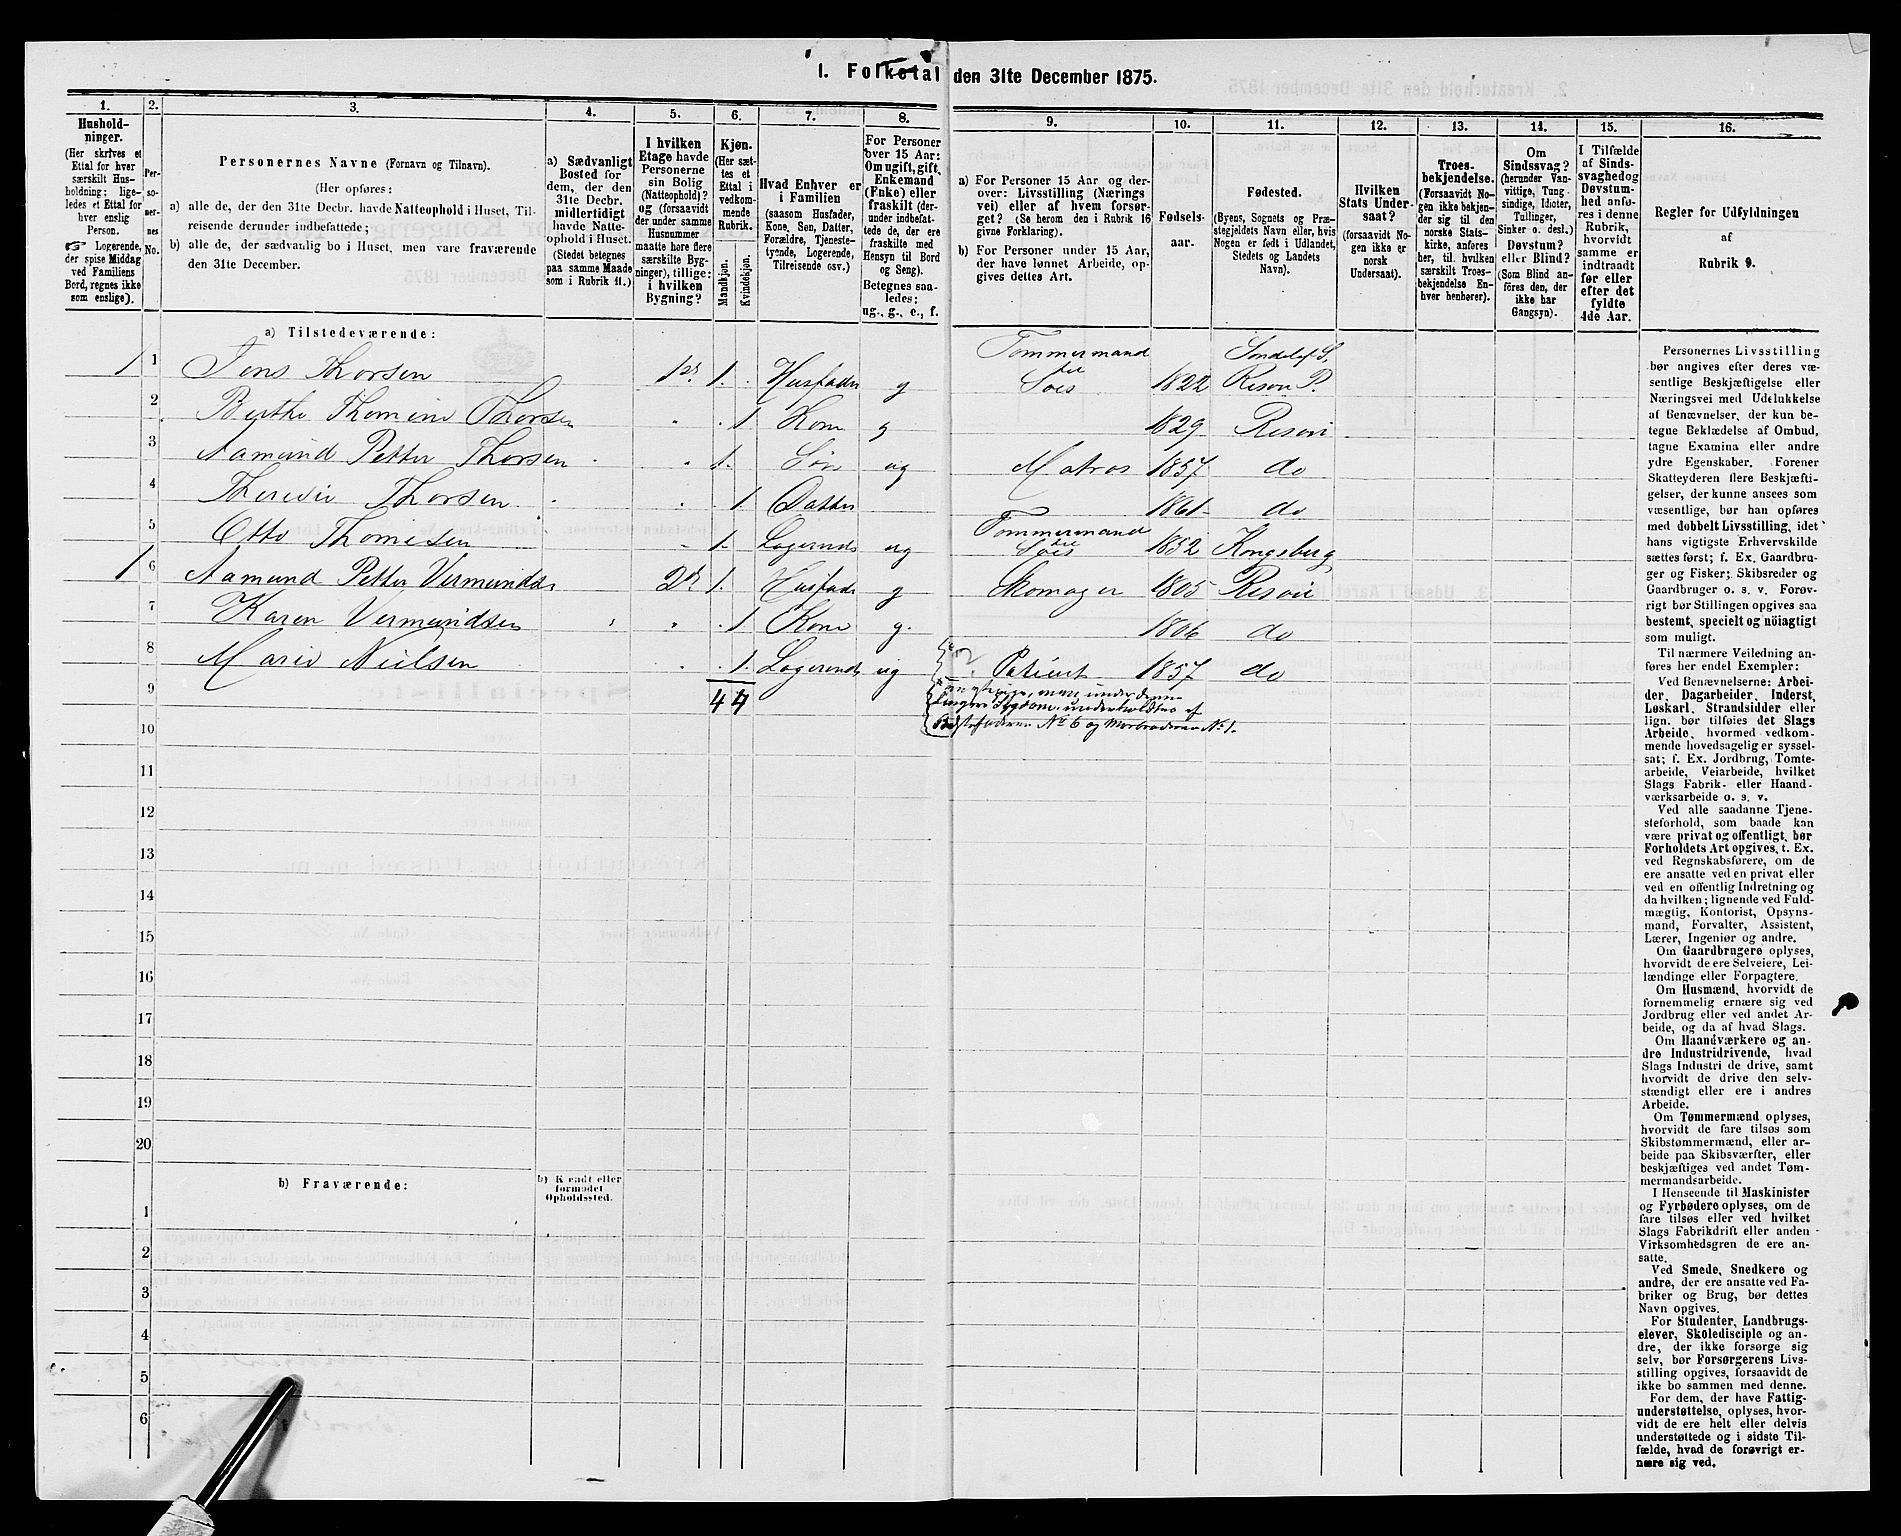 1. Folketal den 31te December 1875.
1. 2. 3. 4. 5. 6. 7. 8. 9. 10. 11. 12. 13. 14. 15. 16.
Hushold-
ninger.
(Her skrives et
Ettal for hver
særskilt Hus-
holdning; lige-
ledes et Ettal for
hver enslig
Person.
☞ Logerende,
der spise Middag
ved Familiens
Bord, regnes ikke
som enslige).
Per-
so-
ner-
nes
No.
Personernes Navne (Fornavn og Tilnavn).
(Her opføres:
a) alle de, der den 31te Decbr. havde Natteophold i Huset, Til-
reisende derunder indbefattede;
b) alle de, der sædvanlig bo i Huset, men vare fraværende
den 31te December.
a) Sædvanligt
Bosted for
dem, der den
31te Decbr.
midlertidigt
havde Natte-
ophold i Huset.
(Stedet betegnes
paa samme Maade
som i Rubrik 11.)
I hvilken
Etage havde
Personerne
sin Bolig
(Natteophold)?
og (forsaavidt
der under samme
Husnummer
maatte høre flere
særskilte Byg-
ninger), tillige:
i hvilken
Bygning?
Kjøn.
(Her sæt-
tes et
Ettal i
vedkom-
mende
Rubrik.
Mandkjøn.
Kvindekjøn.
Hvad Enhver er
i Familien
(saasom Husfader,
Kone, Søn, Datter,
Forældre, Tjeneste-
tyende, Logerende,
Tilreisende osv.)
For Personer
over 15 Aar:
Om ugift, gift,
Enkemand
(Enke) eller
fraskilt (der-
under indbefat-
tede de, der ere
fraskilte med
Hensyn til Bord
og Seng).
Betegnes saa-
ledes:
ug., g., e., f.
a) For Personer 15 Aar og der-
over: Livsstilling (Nærings-
vei) eller af hvem forsør-
get? (Se herom den i Rubrik 16
givne Forklaring).
b) For Personer under 15 Aar,
der have lønnet Arbeide, op-
gives dettes Art.
Fødsels-
aar.
Fødested.
(Byens, Sognets og Præ-
stegjeldets Navn eller, hvis
Nogen er født i Udlandet,
Stedets og Landets
Navn).
Hvilken
Stats Under-
saat?
(forsaavidt No-
gen ikke er
norsk
Undersaat).
Troes-
bekjendelse.
(Forsaavidt No-
gen ikke bekjen-
der sig til den
norske Stats-
kirke, anføres
her, til hvilken
særskilt Troes-
bekjendelse En-
hver henhører).
Om
Sindssvag?
(herunder Van-
vittige, Tung-
sindige, Idioter,
Tullinger,
Sinker o. desl.)
Døvstum?
eller Blind?
(Som Blind an-
føres den, der
ikke har
Gangsyn).
I Tilfælde
af Sinds-
svaghed og
Døvstum-
hed anfø-
res i denne
Rubrik,
hvorvidt
samme er
indtraadt
før eller
efter det
fyldte
4de Aar.
Regler for Udfyldningen
af
Rubrik 9.
a) Tilstedeværende:
1 1 Jens Thorsen 1st. 1. Husfader g Tømmermand til Søes 1822 Søndeløf S. Risør P.
2 Berthe Thomine Thorsen 1 Kone g 1829 Risør
3 Aamund Petter Thorsen 1. Søn ug Matros 1857 do
4 Theresie Thorsen 1 Datter 1861 do
5 Otto Thomesen 1. Logerende ug Tømmermand til Søes 1852 Kongsberg
1 6 Aamund Petter Vermundsen 2d. 1. Husfader g Skomager 1805 Risør
7 Karen Vermundsen 1 Kone g. 1806 do
8 Marie Nielsen 1. Logerende ug Patient 1857 do
9 4 4
Sygdom, underholdtes af
Bedstefaderen No 6 og Morbroderen No 1.
10
11
12
13
14
15
16
17
18
19
20
b) Fraværende:
b) Kjendt eller
formodet
Opholdssted.
1
2
3
4
5
6
Personernes Livsstilling
bør angives efter deres væ-
sentlige Beskjæftigelse eller
Næringsvei med Udelukkelse
af Benævnelser, der kun be-
tegne Beklædelse af Ombud,
tagne Examina eller andre
ydre Egenskaber. Forener
Skatteyderen flere Beskjæfti-
gelser, der kunne ansees som
væsentlige, bør han opføres
med dobbelt Livsstilling, idet
hans vigtigste Erhvervskilde
sættes først; f. Ex. Gaardbru-
ger og Fisker; Skibsreder og
Gaardbruger o. s. v. Forøv-
rigt bør Stillingen opgives saa
bestemt, specielt og nöiagtigt
som muligt.
Til nærmere Veiledning an-
føres her endel Exempler:
Ved Benævnelserne: Arbei-
der, Dagarbeider, Inderst,
Løskarl, Strandsidder eller
lign. bør tilføies det Slags
Arbeide, hvormed vedkom-
mende hovedsagelig er syssel-
sat; f. Ex. Jordbrug, Tomte-
arbeide, Veiarbeide, hvilket
Slags Fabrik- eller Haand-
værksarbeide o. s. v.
Ved alle saadanne Tjene-
steforhold, som baade kan
være privat og offentligt, bør
Forholdets Art opgives, t. Ex.
ved Regnskabsførere, om de
ere ansatte ved en privat eller
ved en offentlig Indretning og
da hvilken; lignende ved Fuld-
mægtig, Kontorist, Opsyns-
mand, Forvalter, Assistent,
Lærer, Ingeniør og andre.
Om Gaardbrugere oplyses,
hvorvidt de ere Selveiere, Lei-
lændinge eller Forpagtere.
Om Husmænd, hvorvidt de
fornemmelig ernære sig ved
Jordbrug eller ved andet Ar-
beide, og da af hvad Slags.
Om Haandværkere og an-
dre Industridrivende, hvad
Slags Industri de drive, samt
hvorvidt de drive den selv-
stændigt eller ere i andres
Arbeide.
Om Tømmermænd oplyses,
hvorvidt de fare tilsøs som
Skibstømmermænd, eller ar-
beide paa Skibsværfter, eller
beskjæftiges ved andet Tøm-
mermandsarbeide.
I Henseende til Maskinister
og Fyrbødere oplyses, om de
fare tilsøs eller ved hvilket
Slags Fabrikdrift eller anden
Virksomhedsgren de ere an-
satte.
Ved Smede, Snedkere og
andre, der ere ansatte ved Fa-
briker og Brug, bør dettes
Navn opgives.
For Studenter, Landbrugs-
elever, Skoledisciple og an-
dre, der ikke forsørge sig
selv, bør Forsørgerens Livs-
stilling opgives, forsaavidt de
ikke bo sammen med denne.
For dem, der have Fattig-
understøttelse, oplyses, hvor-
vidt de ere helt eller delvis
understøttede og i sidste Til-
fælde, hvad de forøvrigt er-
nære sig ved.